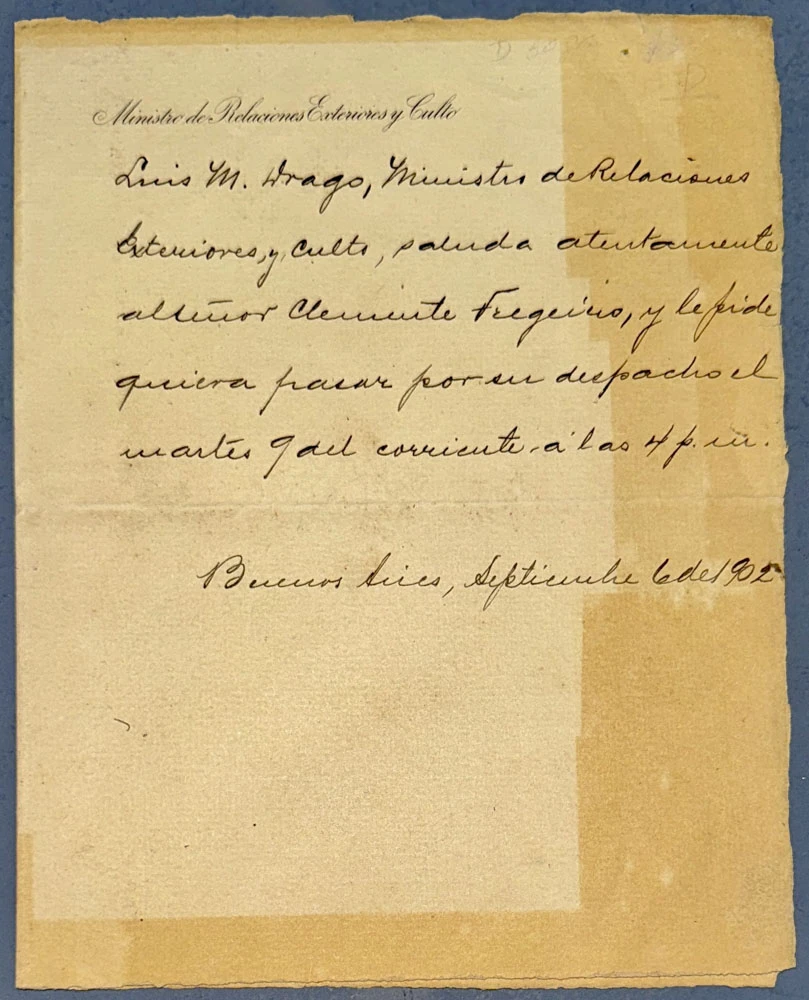 Ministro de Relaciones Exteriores y Culto
Luis M. Drago, Ministro de Relaciones
Exteriores, y Culto, saluda atentamente
al señor Clemente Fregeiro, y le pide
quiera pasar por su despacho el
martes 9 del corriente á las 4 p. m.
Buenos Aires, Septiembre 6 de 1902